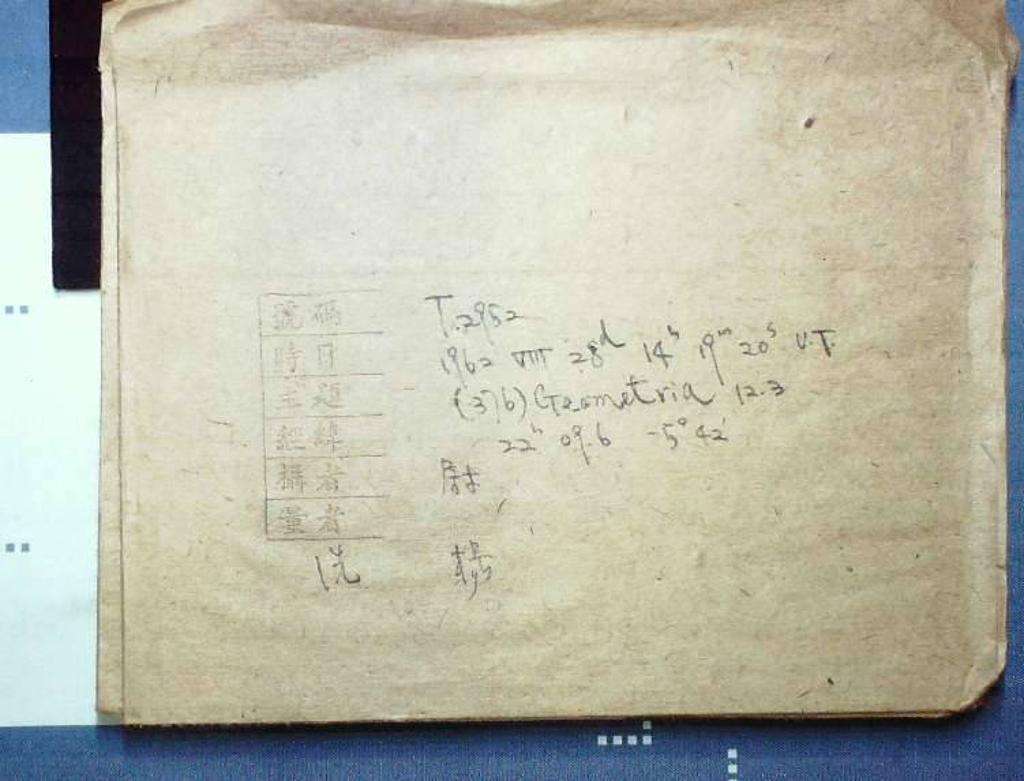 號碼 T.2952
時日 1962 VIII 28d 14h 19m 20s U.T.
主題 (376) Geometria 12.3
經緯 22h 09.6 -5° 42'
攝者
量者
洗